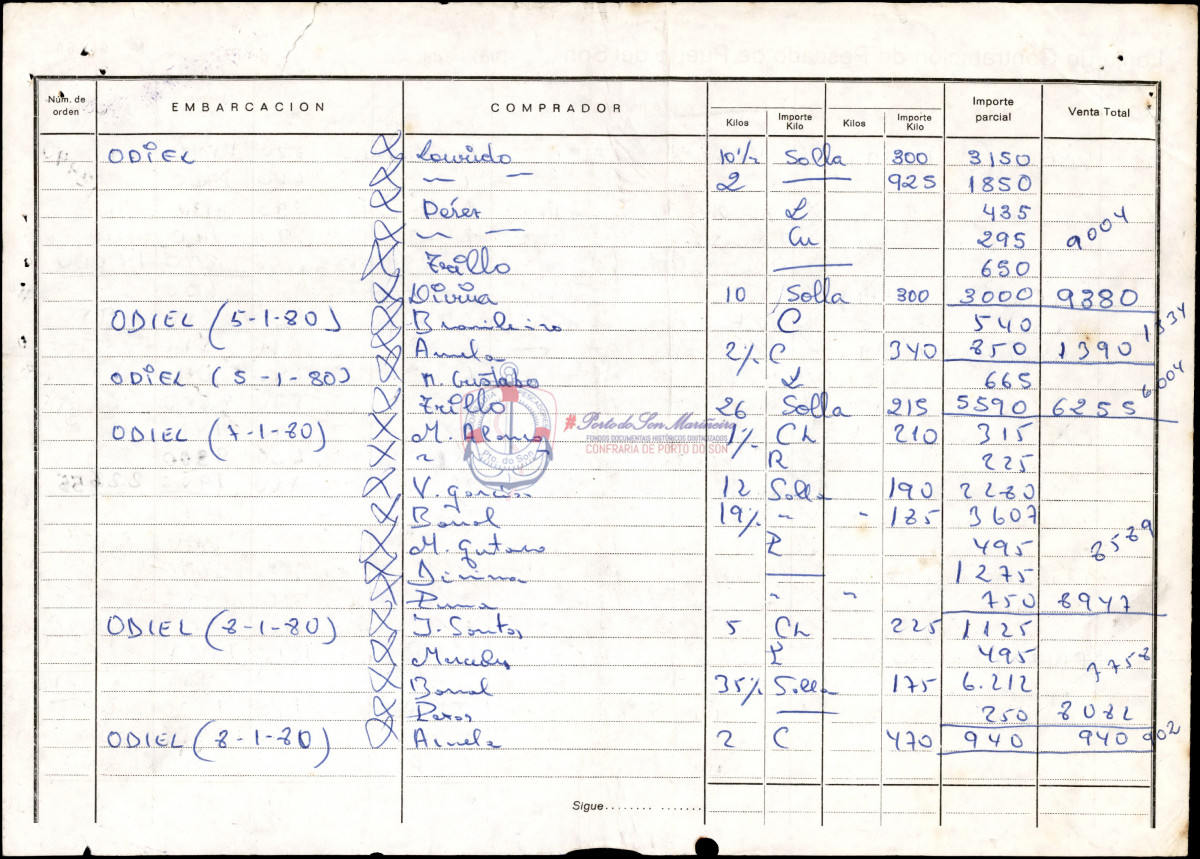 Núm. de orden EMBARCACION COMPRADOR Kilos Importe Kilo Kilos Importe Kilo Importe parcial Venta Total
ODIEL Lourido 10½ Solla 300 3150
〃 — 2 — 925 1850
Pérez L 435
〃 — Cu 295 9004
Trillo — 650
Divina 10 Solla 300 3000 9380
ODIEL (5-1-80) Brasileiro C 540 1334
Amela 2½ C 340 850 1390
ODIEL (5-1-80) M. Gustabo L 665 6004
Trillo 26 Solla 215 5590 6255
ODIEL (7-1-80) M. Alonso 1½ Ch 210 315
〃 R 225
V. García 12 Solla 190 2280
Barral 19½ 〃 〃 185 3607
M. Gustavo R 495 8589
Divina — 1275
〃 〃 750 8947
ODIEL (8-1-80) J. Santos 5 Ch 225 1125
L 495 7758
Barral 35½ Solla 175 6.212
— 250 8082
ODIEL (8-1-80) Amela 2 C 470 940 940 902
Sigue
Pto. do Son
# Porto do Son Mariñeiro
FONDOS DOCUMENTAIS HISTÓRICOS DIGITALIZADOS
CONFRARIA DE PORTO DO SON